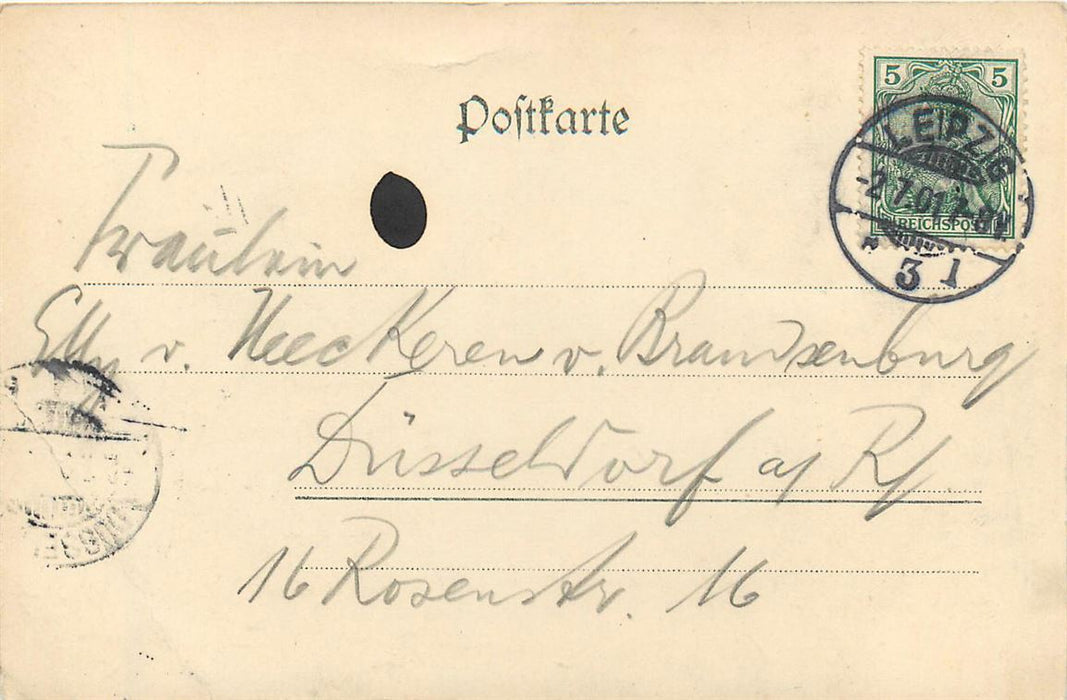 Postkarte
5 5
REICHSPOST
LEIPZIG
-2.7.01.
3 1
Fräulein
Elly v. Heeckeren v. Brandenburg
Düsseldorf a/Rh.
16 Rosenstr. 16